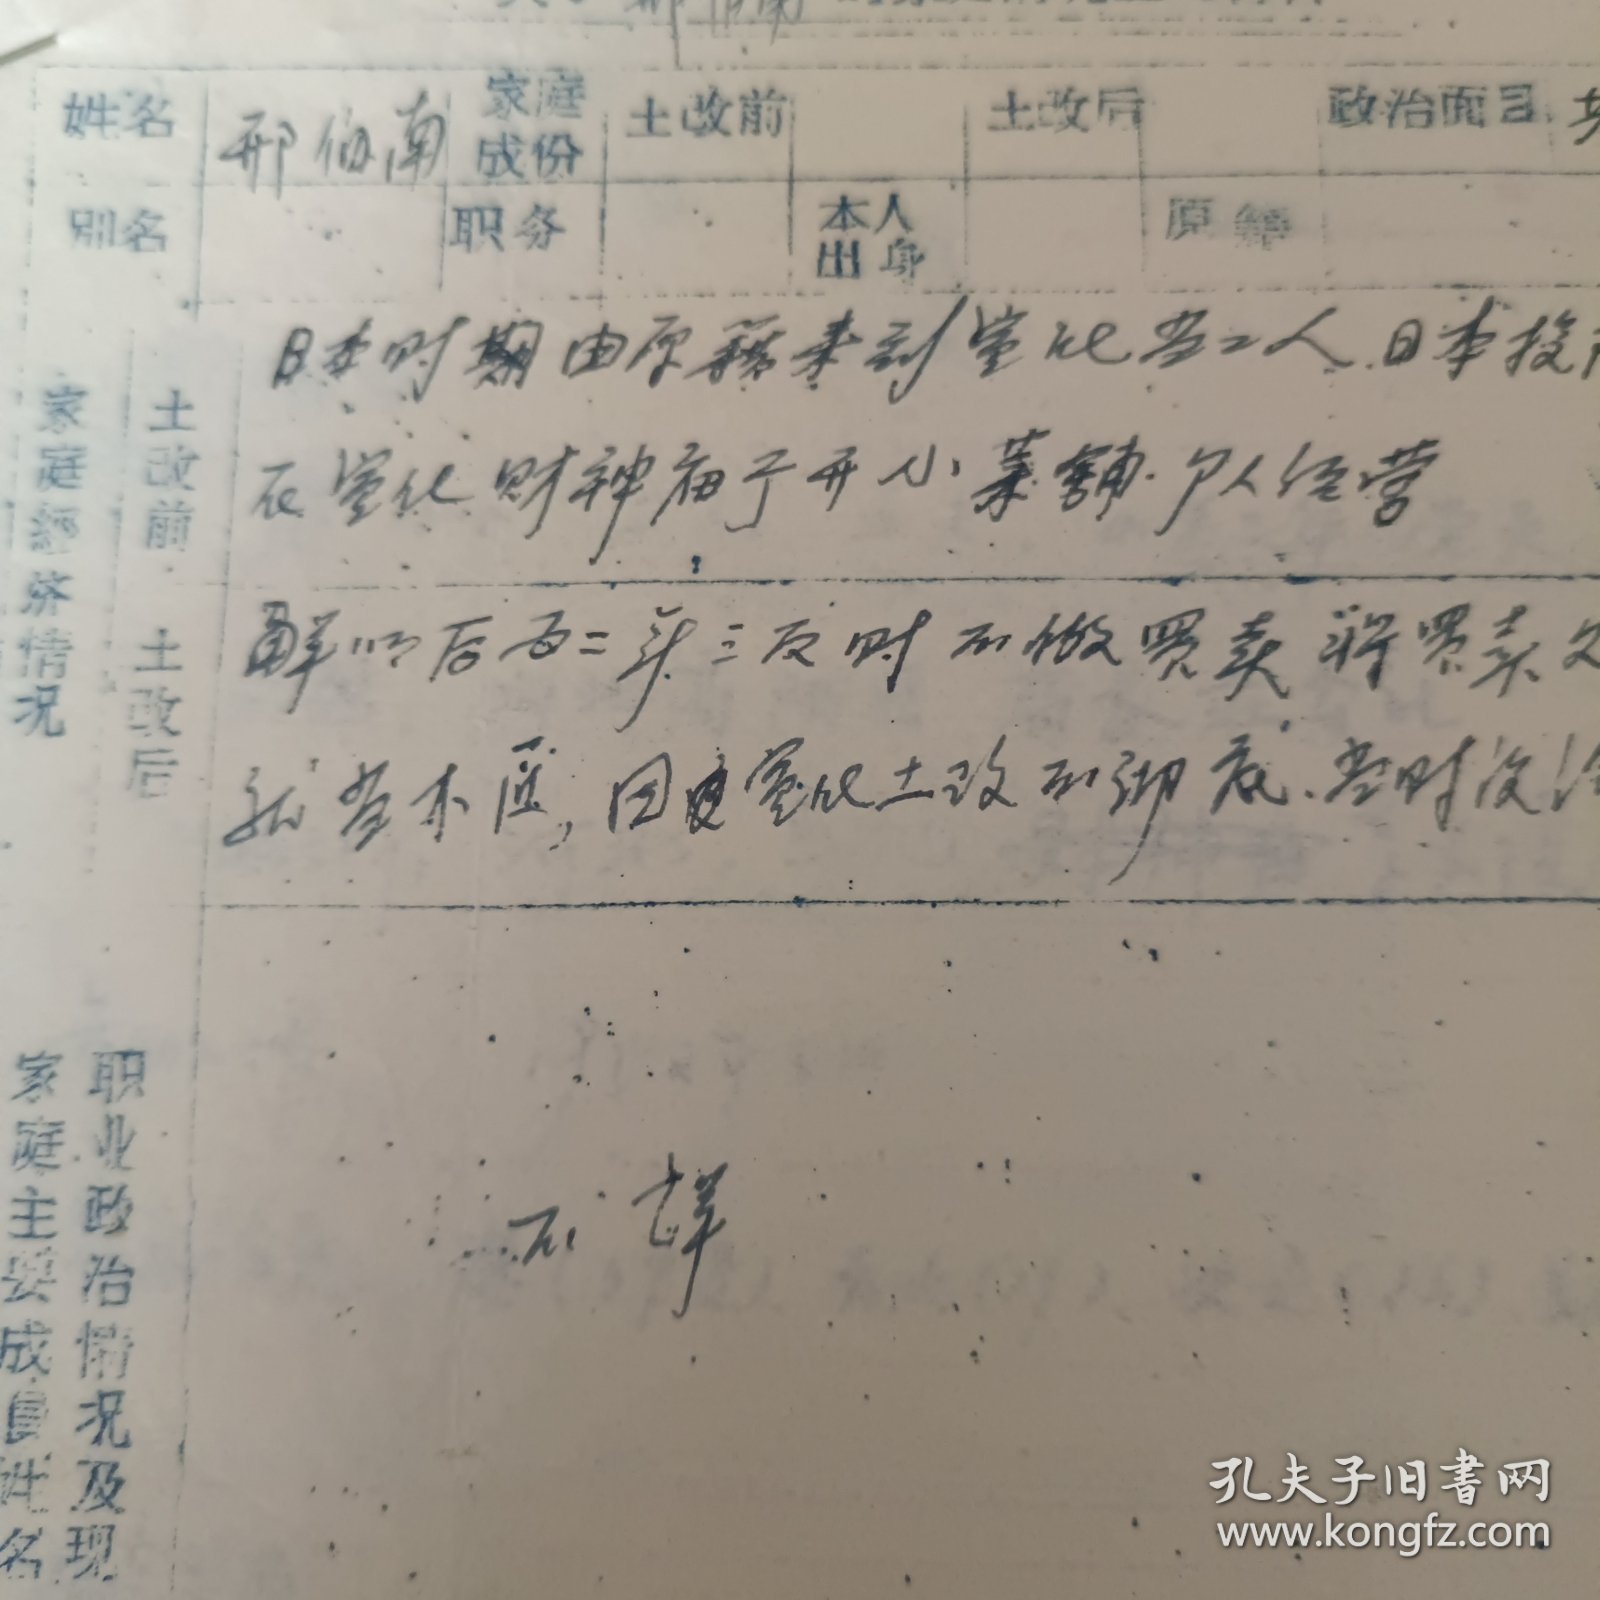 邢伯南
姓名 邢伯南 家庭成份 土改前 土改后 政治面目
别名 职务 本人出身 原籍
家庭经济情况
土改前
日本时期由原籍来到宣化当工人.日本投
在宣化财神庙于开小菜铺.个人经营
土改后
解放后五二年三反时不做买卖 将买卖
当木匠,因宣化土改不彻底.当时没
家庭主要成员姓名
职业政治情况及现
不详
孔夫子旧书网
www.kongfz.com